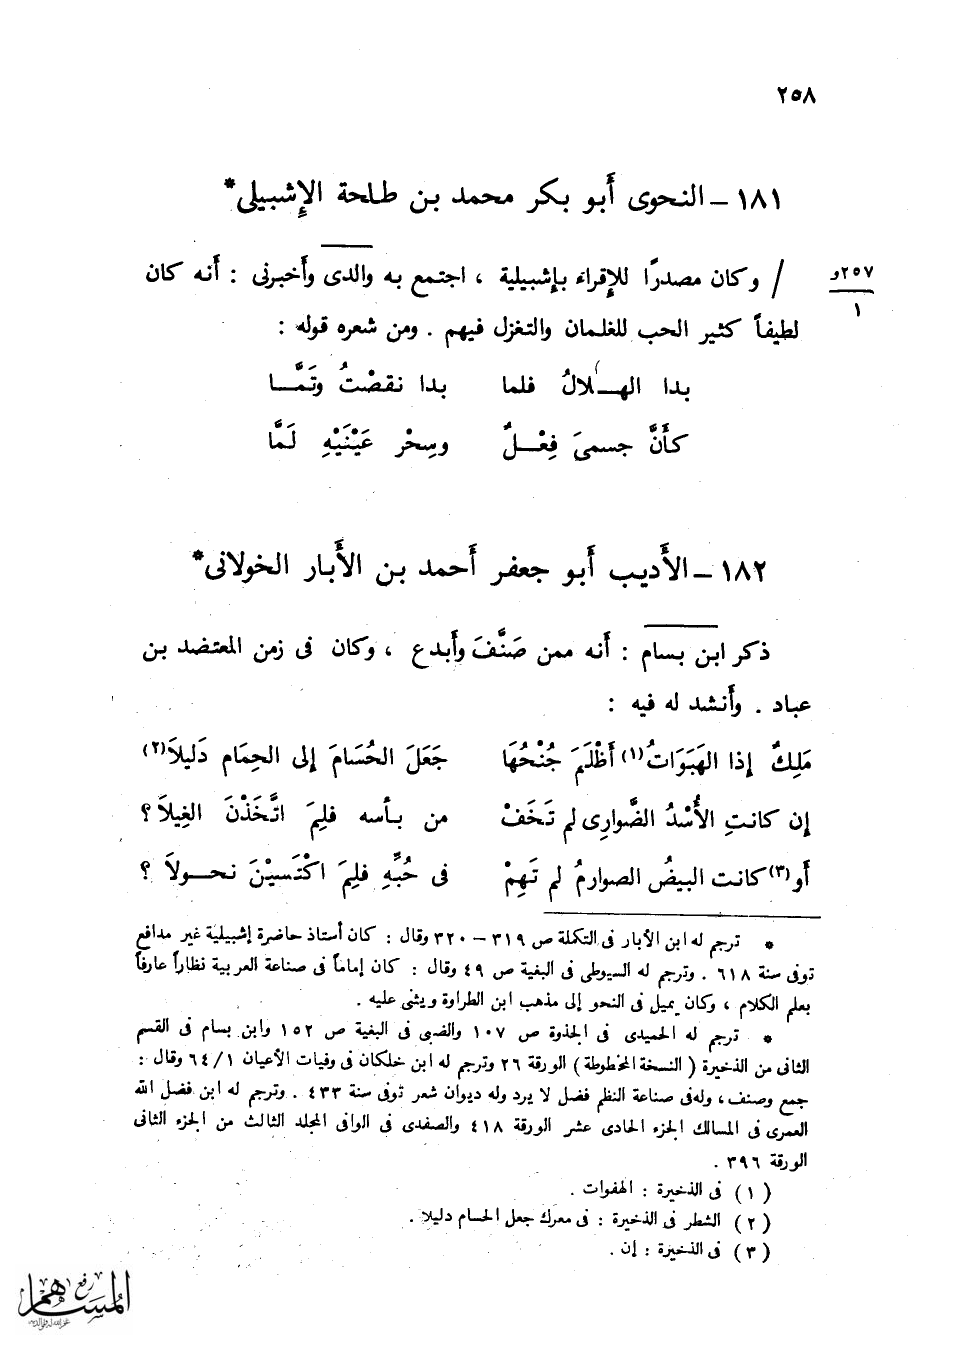 ٢٥٨
١٨١ – النحوى أَبو بكر محمد بن طلحة الإِشبيلى*
/ وكان مصدرًا للإِقراء بإِشبيلية ، اجتمع به والدى وأَخبرنى : أَنه كان
٢٥٧و
١
لطيفاً كثير الحب للغلمان والتغزل فيهم . ومن شعره قوله :
بدا الهــلالُ فلما بدا نقصْتُ وتَمَّــا
كأَنَّ جسمىَ فِعْــلٌ وسِحْر عَيْنَيْهِ لَمَّا
١٨٢ – الأَديب أَبو جعفر أَحمد بن الأَبار الخولانى*
ذكر ابن بسام : أَنه ممن صَنَّفَ وأَبدع ، وكان فى زمن المعتضد بن
عباد . وأَنشد له فيه :
مَلِكٌ إذا الهَبَوَاتُ(١) أَظْلَمَ جُنْحُهَا جَعَلَ الحُسَامَ إلى الحِمَام دَليلاَ(٢)
إن كانتِ الأُسْدُ الضَّوارِى لم تَخَفْ من بأسه فلِمَ اتَّخَذْنَ الغِيلاَ؟
أو(٣)كانت البيضُ الصوارمُ لم تَهِمْ فى حُبِّهِ فلِمَ اكْتَسيْنَ نحــولاَ ؟
* ترجم له ابن الأبار فى التكملة ص ٣١٩ – ٣٢٠ وقال : كان أستاذ حاضرة إشبيلية غير مدافع
توفى سنة ٦١٨ . وترجم له السيوطى فى البغية ص ٤٩ وقال : كان إماماً فى صناعة العربية نظاراً عارفاً
بعلم الكلام ، وكان يميل فى النحو إلى مذهب ابن الطراوة ويثنى عليه .
* ترجم له الحميدى فى الجذوة ص ١٠٧ والضبى فى البغية ص ١٥٢ وابن بسام فى القسم
الثانى من الذخيرة ( النسخة المخطوطة ) الورقة ٢٦ وترجم له ابن خلكان فى وفيات الأعيان ٦٤/١ وقال :
جمع وصنف، وله فى صناعة النظم فضل لا يرد وله ديوان شعر توفى سنة ٤٣٣ . وترجم له ابن فضل الله
العمرى فى المسالك الجزء الحادى عشر الورقة ٤١٨ والصفدى فى الوافى المجلد الثالث من الجزء الثانى
الورقة ٣٩٦ .
( ١ ) فى الذخيرة : الهفوات .
( ٢ ) الشطر فى الذخيرة : فى معرك جعل الحسام دليلا .
( ٣ ) فى الذخيرة : إن .
رفع
المساهم